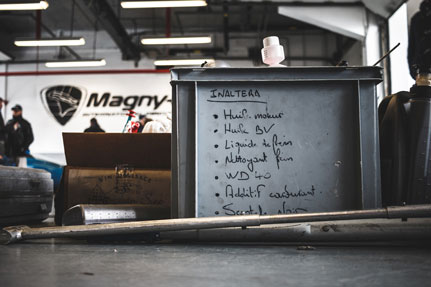 Magny-
INALTERA
• Huile moteur
• Huile BV
• Liquide de frein
• Nettoyant frein
• WD 40
• Additif carburant
• Scotch Noir